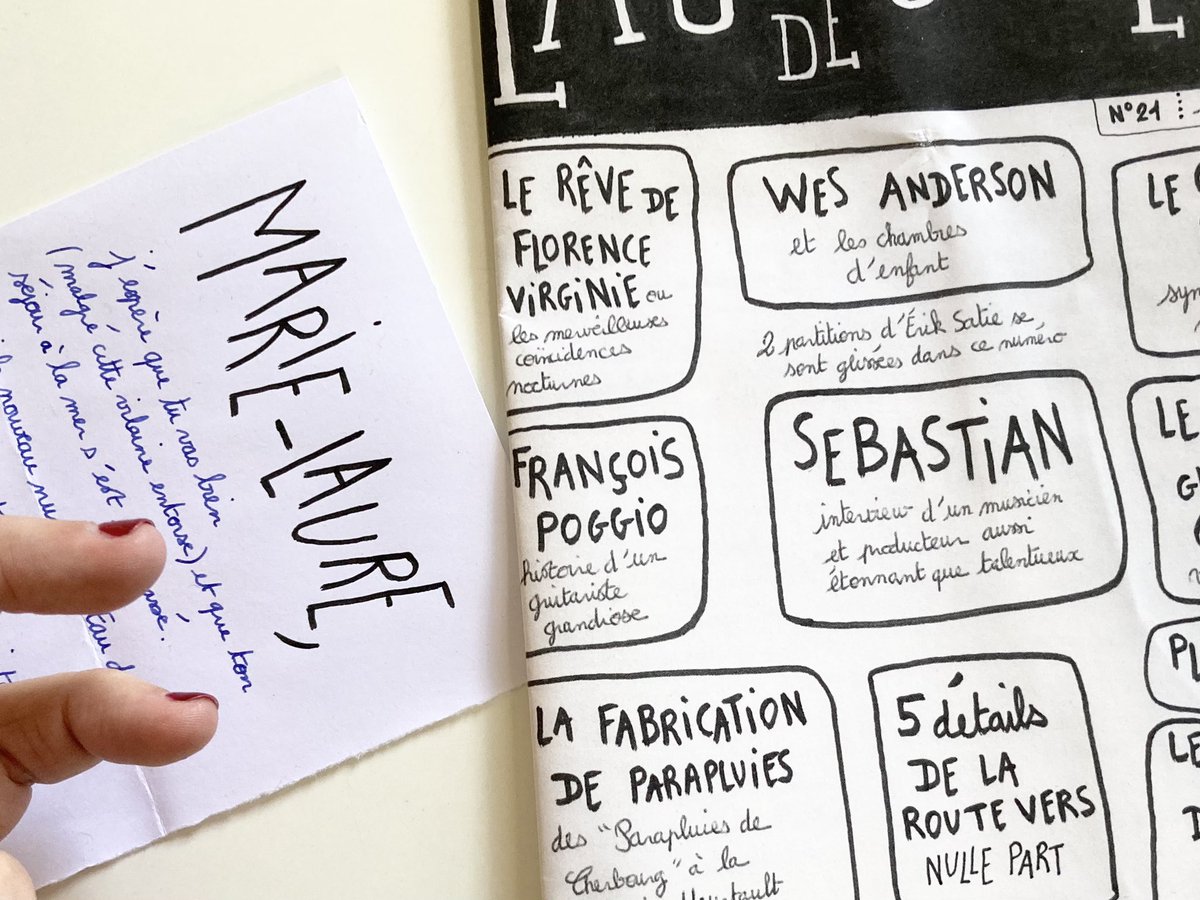 MARIE-LAURE,
j'espère que tu vas bien
(malgré cette vilaine entorse) et que ton
séjour à la mer s'est
nouveau
DE
N°21
LE RÊVE DE
FLORENCE
VIRGINIE ou
les merveilleuses
coïncidences
nocturnes
WES ANDERSON
et les chambres
d'enfant
2 partitions d'Érik Satie se
sont glissées dans ce numéro
FRANÇOIS
POGGIO
histoire d'un
guitariste
grandiose
SEBASTIAN
interview d'un musicien
et producteur aussi
étonnant que talentueux
LA FABRICATION
DE PARAPLUIES
des "Parapluies de
Cherbourg" à la
5 détails
DE LA
ROUTE VERS
NULLE PART
LE
LE
PL
LE